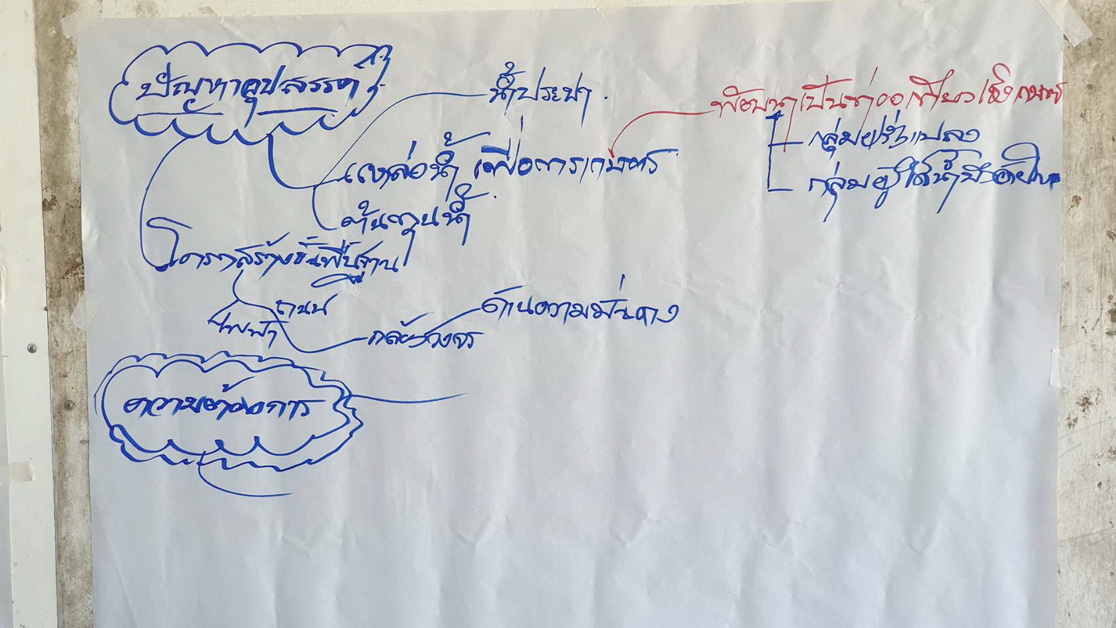 ปัญหาอุปสรรค
น้ำประปา
แหล่งน้ำ เพื่อการเกษตร
ต้นทุนน้ำ
พัฒนาเป็นท่องเที่ยวเชิงเกษตร
กลุ่มแปลง
กลุ่มผู้ใช้น้ำ
โครงสร้างขั้นพื้นฐาน
ถนน
ไฟฟ้า
กล้องวงจร
ด้านความมั่นคง
ความต้องการ